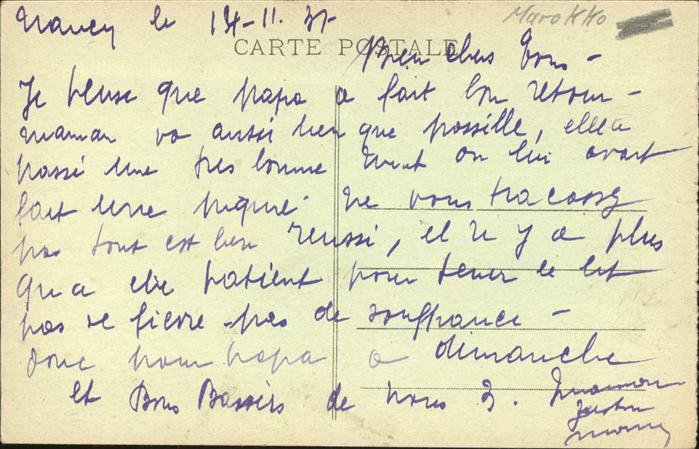 Nancy le 14-11.31-
Marokko
CARTE POSTALE
Bien chers Tous -
Je pense que papa a fait bon retour -
maman va aussi bien que possible, elle a
passé une très bonne nuit on lui avait
fait une piqure. Ne vous tracassez
pas tout est bien réussi, et il n'y a plus
qu'a être patient pour tenir le lit
pas de fièvre pas de souffrance -
donc pour papa a dimanche
et Bons Baisers de nous 3. maman